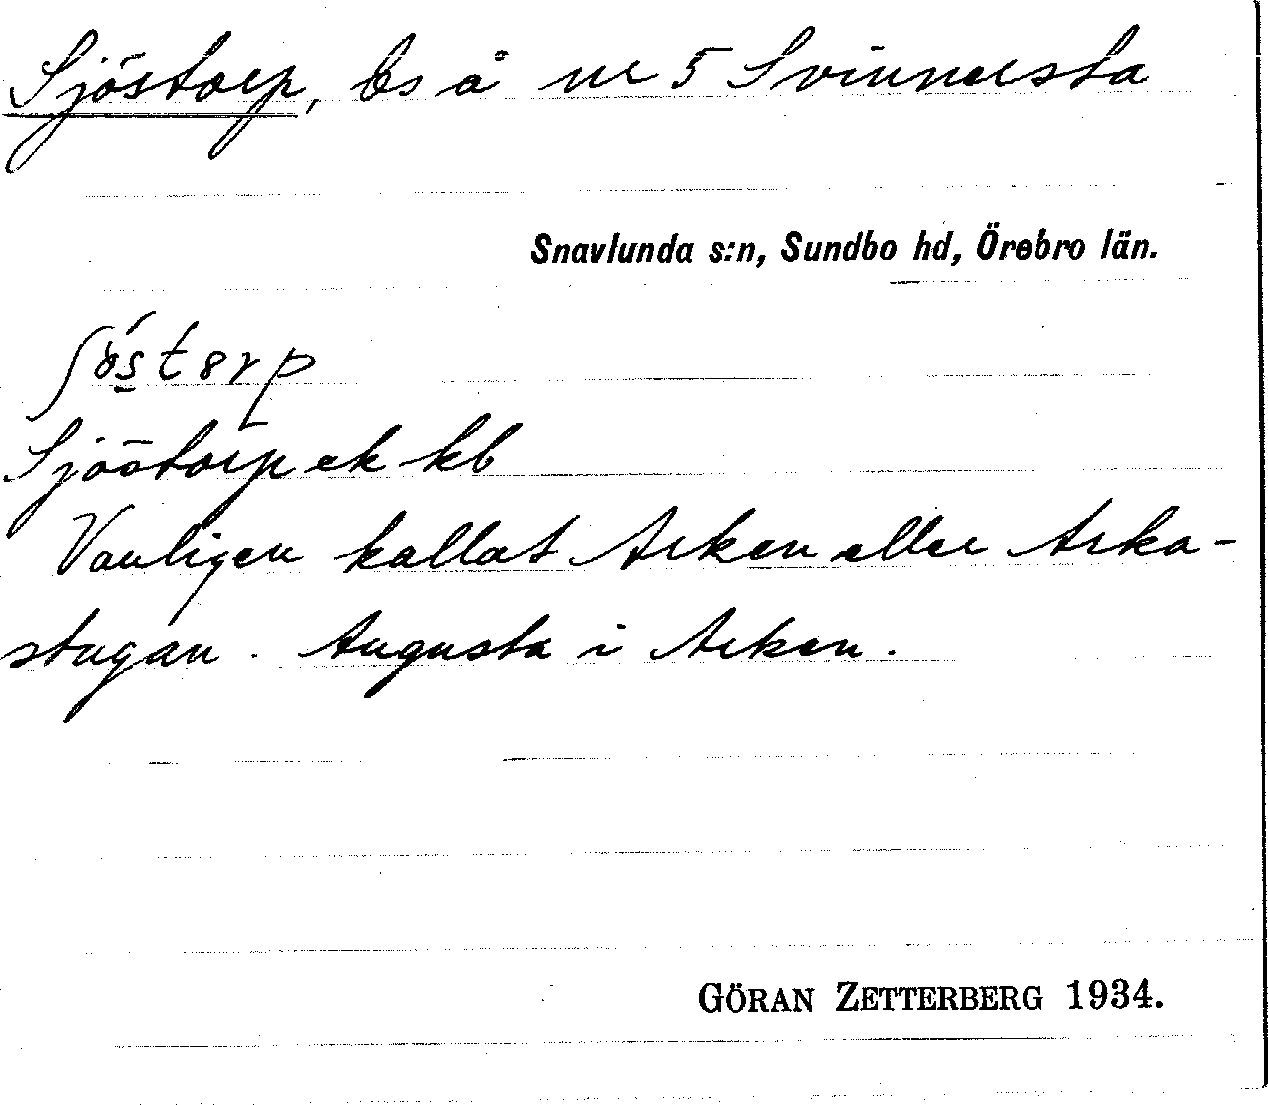 Sjöstorp, ls å nr 5 Svinnersta
Snavlunda s:n, Sundbo hd, Örebro län.
Sjöstorp ek kb
Vanligen kallat Arken eller Arka-
stugan. Augusta i Arken.
GÖRAN ZETTERBERG 1934.